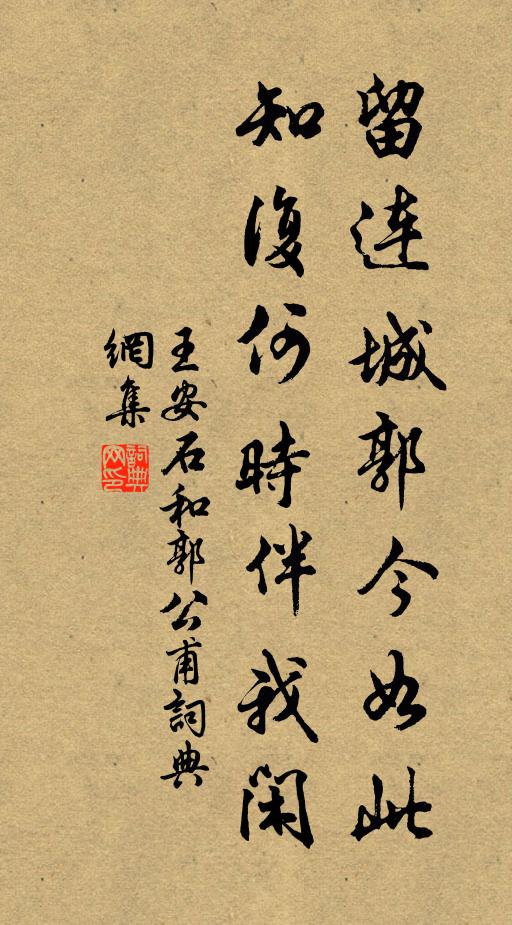 留連城郭今如此
知復何時伴我閑
王安石和郭公甫詞典
網集
詞典網印